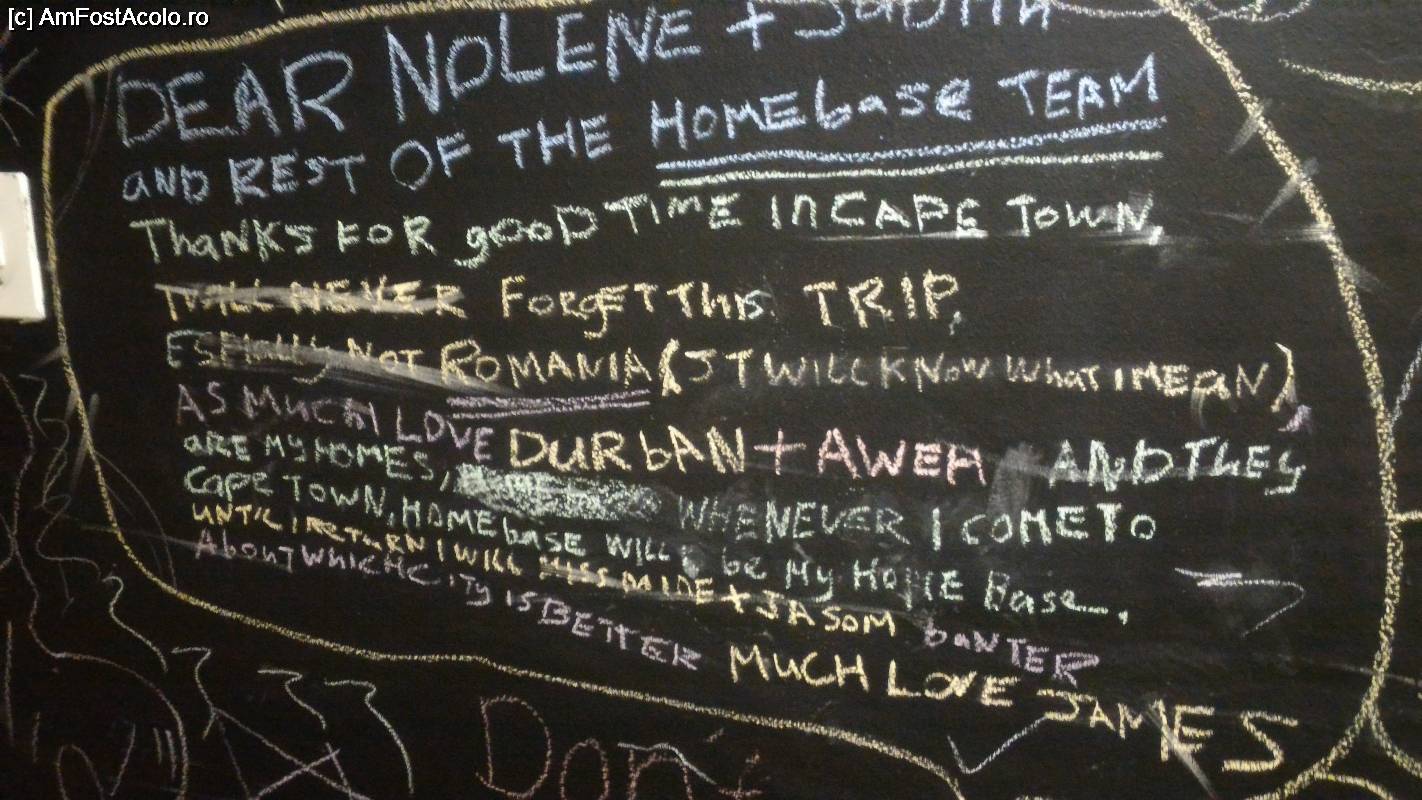 [c] AmFostAcolo.ro
DEAR NOLENE + JUDITH
AND REST OF THE HOMEbase TEAM
ThanKS FOR gOOD TIME In CAPE TOWN,
I WILL NEVER FOrgET This TRIP,
NOT ROMANIA (JT WILL KNOW WhaT I MEAN)
AS MUCH LOVE DURbAN + AWEH AND They
are MY HOMES, WHENEVER I COME TO
Cape TOWN, HOMEbase WILL be My HOME Base,
UNTIL I RETURN I WILL MISS MINE + JASOM banTER
AbouT WHICH CITY IS BETTER MUCH LOVE JAMES
Don't